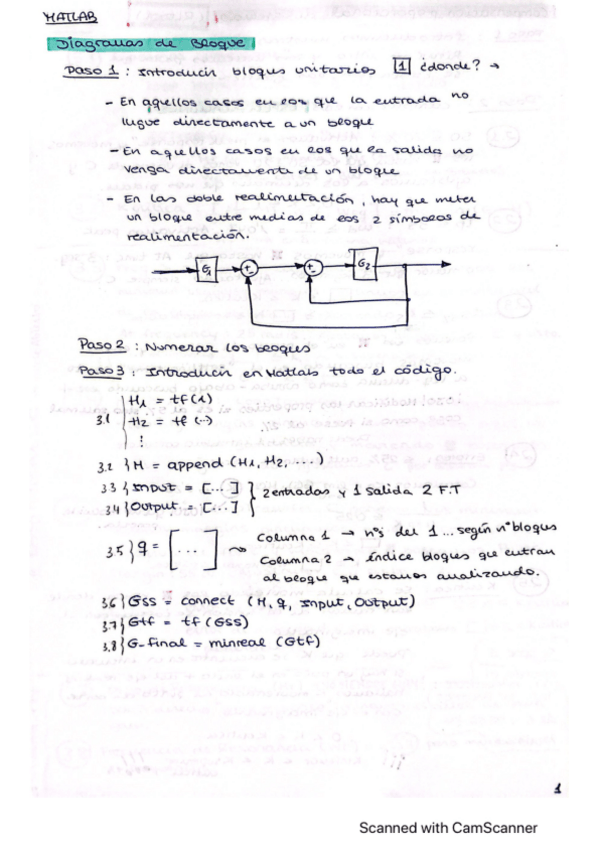 MATLAB
Diagramas de Bloque
Paso 1 : Introducir bloques unitarios [1] ¿donde? →
- En aquellos casos en los que la entrada no
llegue directamente a un bloque
- En aquellos casos en los que la salida no
venga directamente de un bloque
- En las doble realimentación, hay que meter
un bloque entre medias de los 2 símbolos de
realimentación.
G1 + - + - G2
Paso 2 : Numerar los bloques
Paso 3 : Introducir en Matlab todo el código.
3.1 H1 = tf(1)
H2 = tf(..)
⋮
3.2 } H = append (H1, H2, ...)
3.3 } Input = [...]
3.4 } Output = [...] } 2 entradas y 1 salida 2 F.T
3.5 } q = [...] Columna 1 → nºs del 1 ... según nº bloques
Columna 2 → índice bloques que entran
al bloque que estamos analizando.
3.6 } Gss = connect (H, q, Input, Output)
3.7 } Gtf = tf (Gss)
3.8 } G_final = minreal (Gtf)
1
Scanned with CamScanner